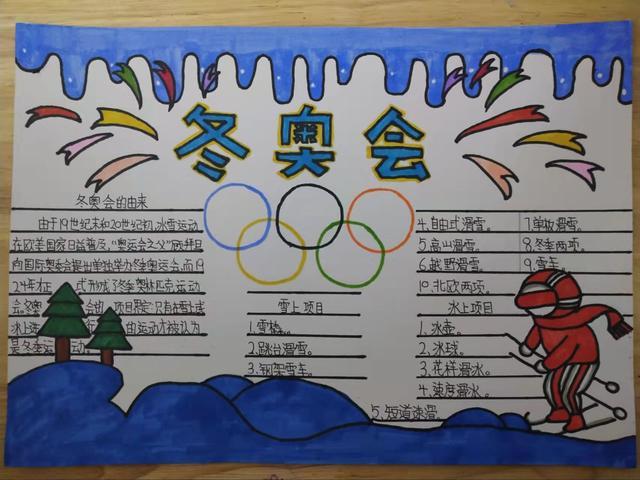 冬奥会
冬奥会的由来
由于19世纪末和20世纪初,冰雪运动
在欧美国家日益普及,"奥运会之父"顾拜旦
向国际奥委会提出单独举办冬季奥运会,而19
24年才正 式形成了冬季奥林匹克运动
会.冬奥 会的 项目限定:只有在雪上或
冰上进 行 的运动才被认为
是冬季运 动。
雪上项目
1.雪橇。
2.跳台滑雪。
3.钢架雪车。
4.自由式滑雪。
5.高山滑雪。
6.越野滑雪。
7.单板滑雪。
8.冬季两项。
9.雪车。
10.北欧两项。
冰上项目
1.冰壶。
2.冰球。
3.花样滑冰。
4.速度滑冰。
5.短道速滑。